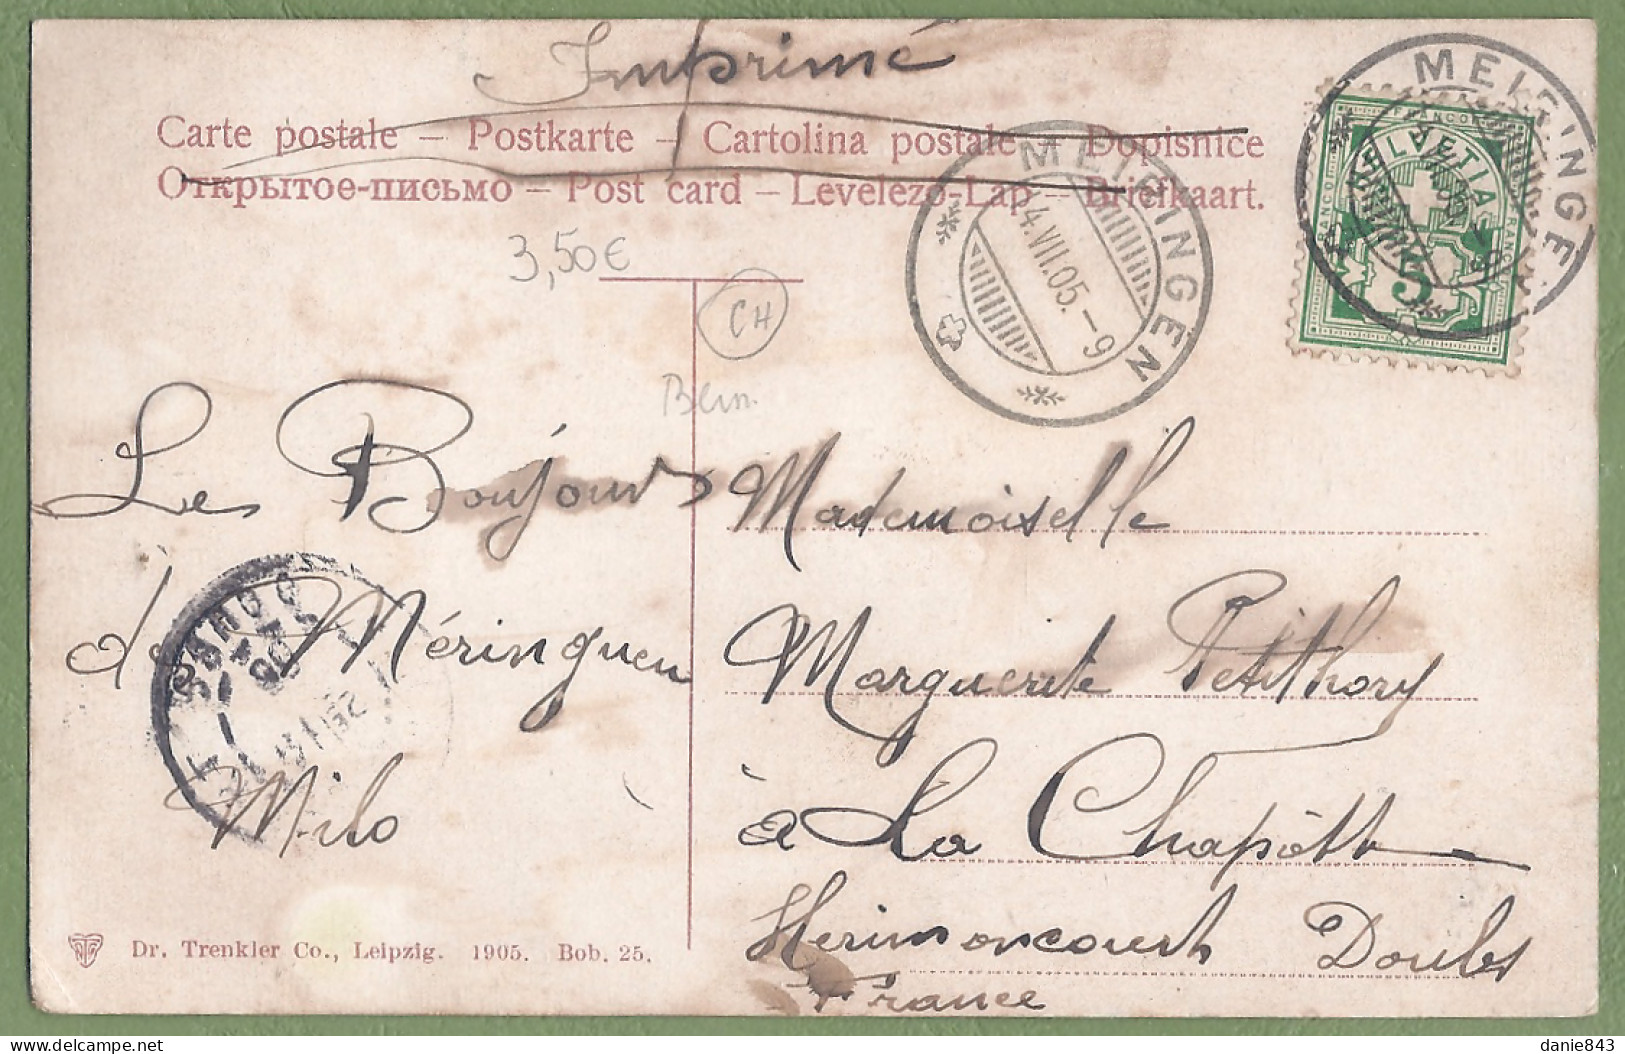 Imprimé
Carte postale – Postkarte – Cartolina postale – Dopisnice
Открытое-письмо – Post card – Levelezö-Lap – Briefkaart.
MEIRINGEN
4.VII.05.–9
MEIRINGEN
HELVETIA
FRANCO
5
3,50€
CH
Bern.
Les Bonjours
de Méringuen
Milo
Mademoiselle
Marguerite Petithory
à La Chapôtte
Herimoncourt Doubs
France
Dr. Trenkler Co., Leipzig. 1905. Bob. 25.
danie843